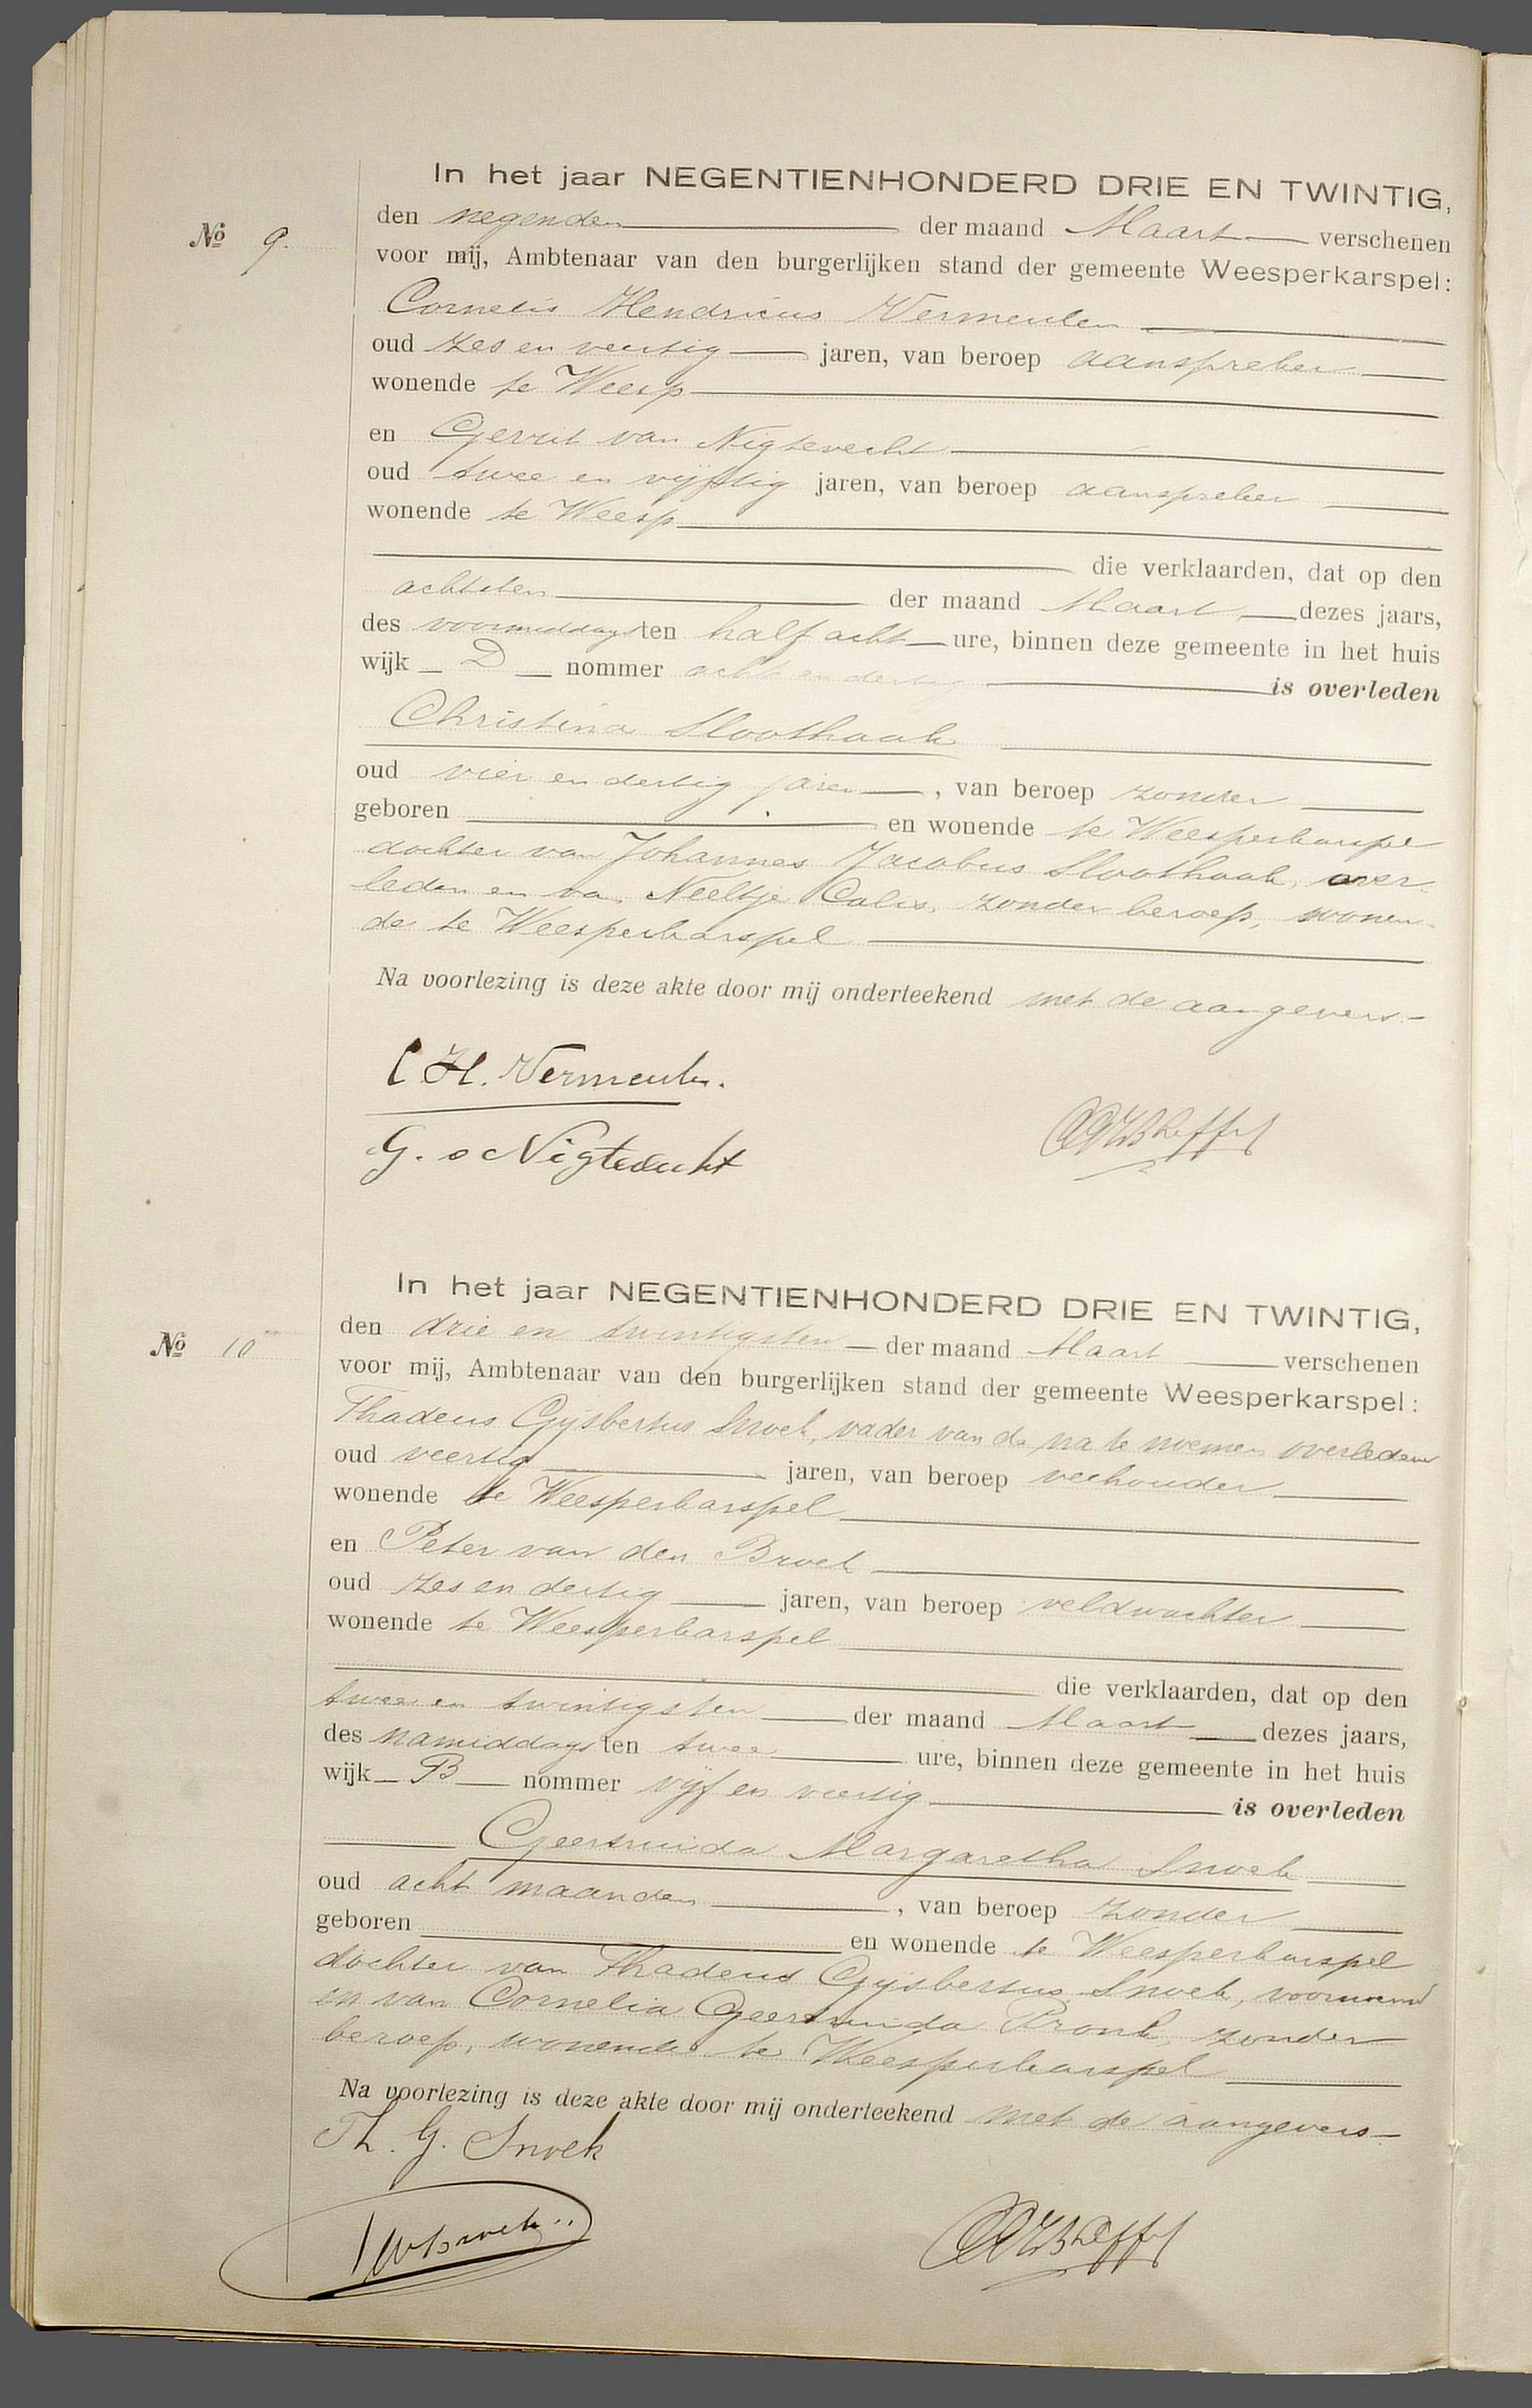 In het jaar NEGENTIENHONDERD DRIE EN TWINTIG,
No 9.
den negenden der maand Maart verschenen
voor mij, Ambtenaar van den burgerlijken stand der gemeente Weesperkarspel:
Cornelis Hendricus Vermeulen
oud zes en veertig jaren, van beroep aanspreker
wonende te Weesp
en Gerrit van Nigtevecht
oud twee en vijftig jaren, van beroep aanspreker
wonende te Weesp
die verklaarden, dat op den
achtsten der maand Maart dezes jaars,
des voormiddags ten half acht ure, binnen deze gemeente in het huis
wijk D nommer acht en dertig is overleden
Christina Sloothaak
oud vier en dertig jaren, van beroep zonder
geboren en wonende te Weesperkarspel
dochter van Johannes Jacobus Sloothaak, over
leden en van Neeltje Calis, zonder beroep, wonen
de te Weesperkarspel
Na voorlezing is deze akte door mij onderteekend met de aangevers
C. H. Vermeulen.
G. v Nigtevecht
In het jaar NEGENTIENHONDERD DRIE EN TWINTIG,
No 10
den drie en twintigsten der maand Maart verschenen
voor mij, Ambtenaar van den burgerlijken stand der gemeente Weesperkarspel:
Thadeus Gijsbertus Snoek, vader van de na te noemen overledene
oud veertig jaren, van beroep veehouder
wonende te Weesperkarspel
en Peter van den Broek
oud zes en dertig jaren, van beroep veldwachter
wonende te Weesperkarspel
die verklaarden, dat op den
twee en twintigsten der maand Maart dezes jaars,
des namiddags ten twee ure, binnen deze gemeente in het huis
wijk B nommer vijf en veertig is overleden
Geertruida Margaretha Snoek
oud acht maanden, van beroep zonder
geboren en wonende te Weesperkarspel
dochter van Thadeus Gijsbertus Snoek, voornoemd
en van Cornelia Geertruida Pronk, zonder
beroep, wonende te Weesperkarspel
Na voorlezing is deze akte door mij onderteekend met de aangevers
Th. G. Snoek